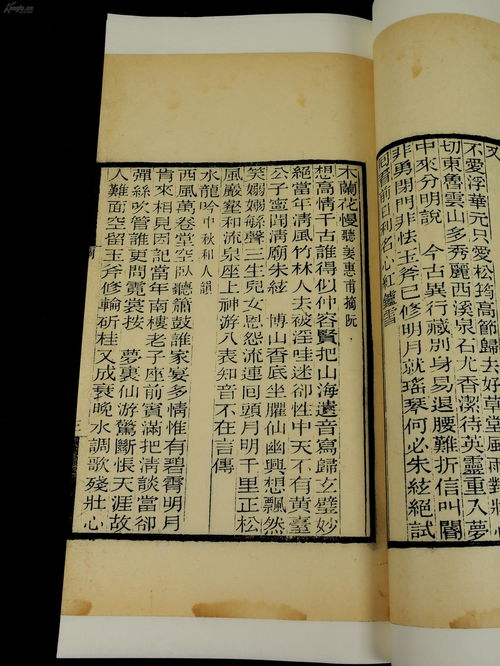 又
不愛浮華元只愛松筠高節歸去好草堂風雨對牀心
切東魯雲山多秀麗西溪泉石尤香潔待英靈重入夢
中來分明說　今古異行藏別身易退腰難折信叫閽
非勇閉門非怯玉斧已修明月就瑤琴何必朱絃絕試
回看前日利名心紅爐雪
木蘭花慢 聽姜惠甫摘阮
想高情千古誰得似仲容賢把山海遺音寫歸玄璧妙
絕當年清風竹林人去被淫哇迷卻性中天不有黃臺
公子寧聞清廟朱絃　博山香底坐臞仙幽興想飄然
笑嫋嫋絲聲三生兒女恩怨流連回頭月明千里正松
風巖壑和流泉座上神游八表知音不在言傳
水龍吟 中秋和人韻
西風萬卷堂空臥聽簫鼓誰家宴多情惟有碧霄明月
肯來相見因記當年南樓老子座前賓滿把清談當卻
彈絲吹管誰更問霓裳按　夢裏仙游驚斷悵天涯故
人難面空留玉斧修輪斫桂又成衰晚水調歌殘壯心
三